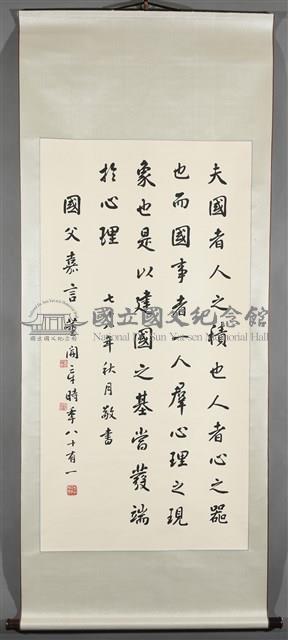 夫國者人之積也人者心之器
也而國事者一人羣心理之現
象也是以建國之基當發端
於心理
年秋月敬書
國父嘉言
董開章時年八十有一
國立國父紀念館
National Dr. Sun Yat-sen Memorial Hall